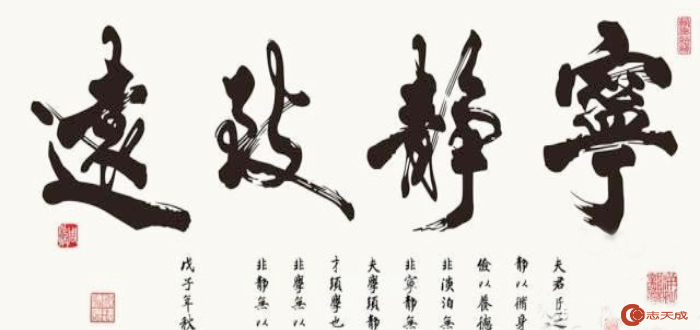 寧靜致遠
夫君子之
靜以脩身
儉以養德
非澹泊無
非寧靜無
夫學須靜
才須學也
非學無以
非靜無以
戊子年秋
志天成